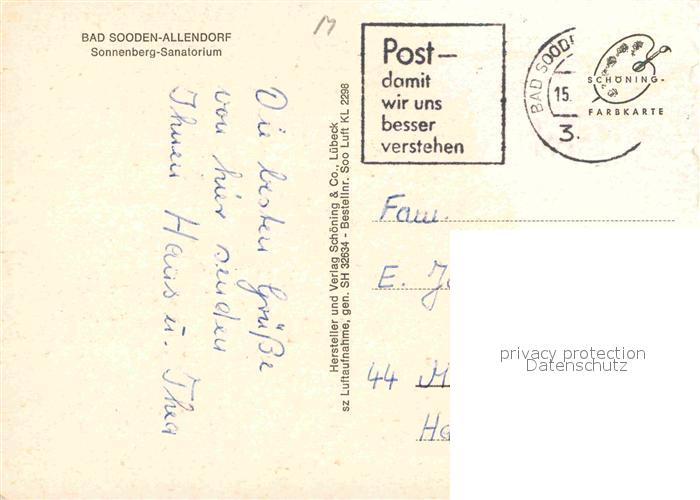 BAD SOODEN-ALLENDORF
Sonnenberg-Sanatorium
M
Die besten Grüße
von hier senden
Ihnen Hans u. Thea
Hersteller und Verlag Schöning & Co., Lübeck
sz Luftaufnahme, gen. SH 32634 - Bestellnr. Soo Luft KL 2298
Post—
damit
wir uns
besser
verstehen
BAD SOOD
15.
3.
SCHÖNING-
FARBKARTE
Fam.
E.
44
privacy protection
Datenschutz